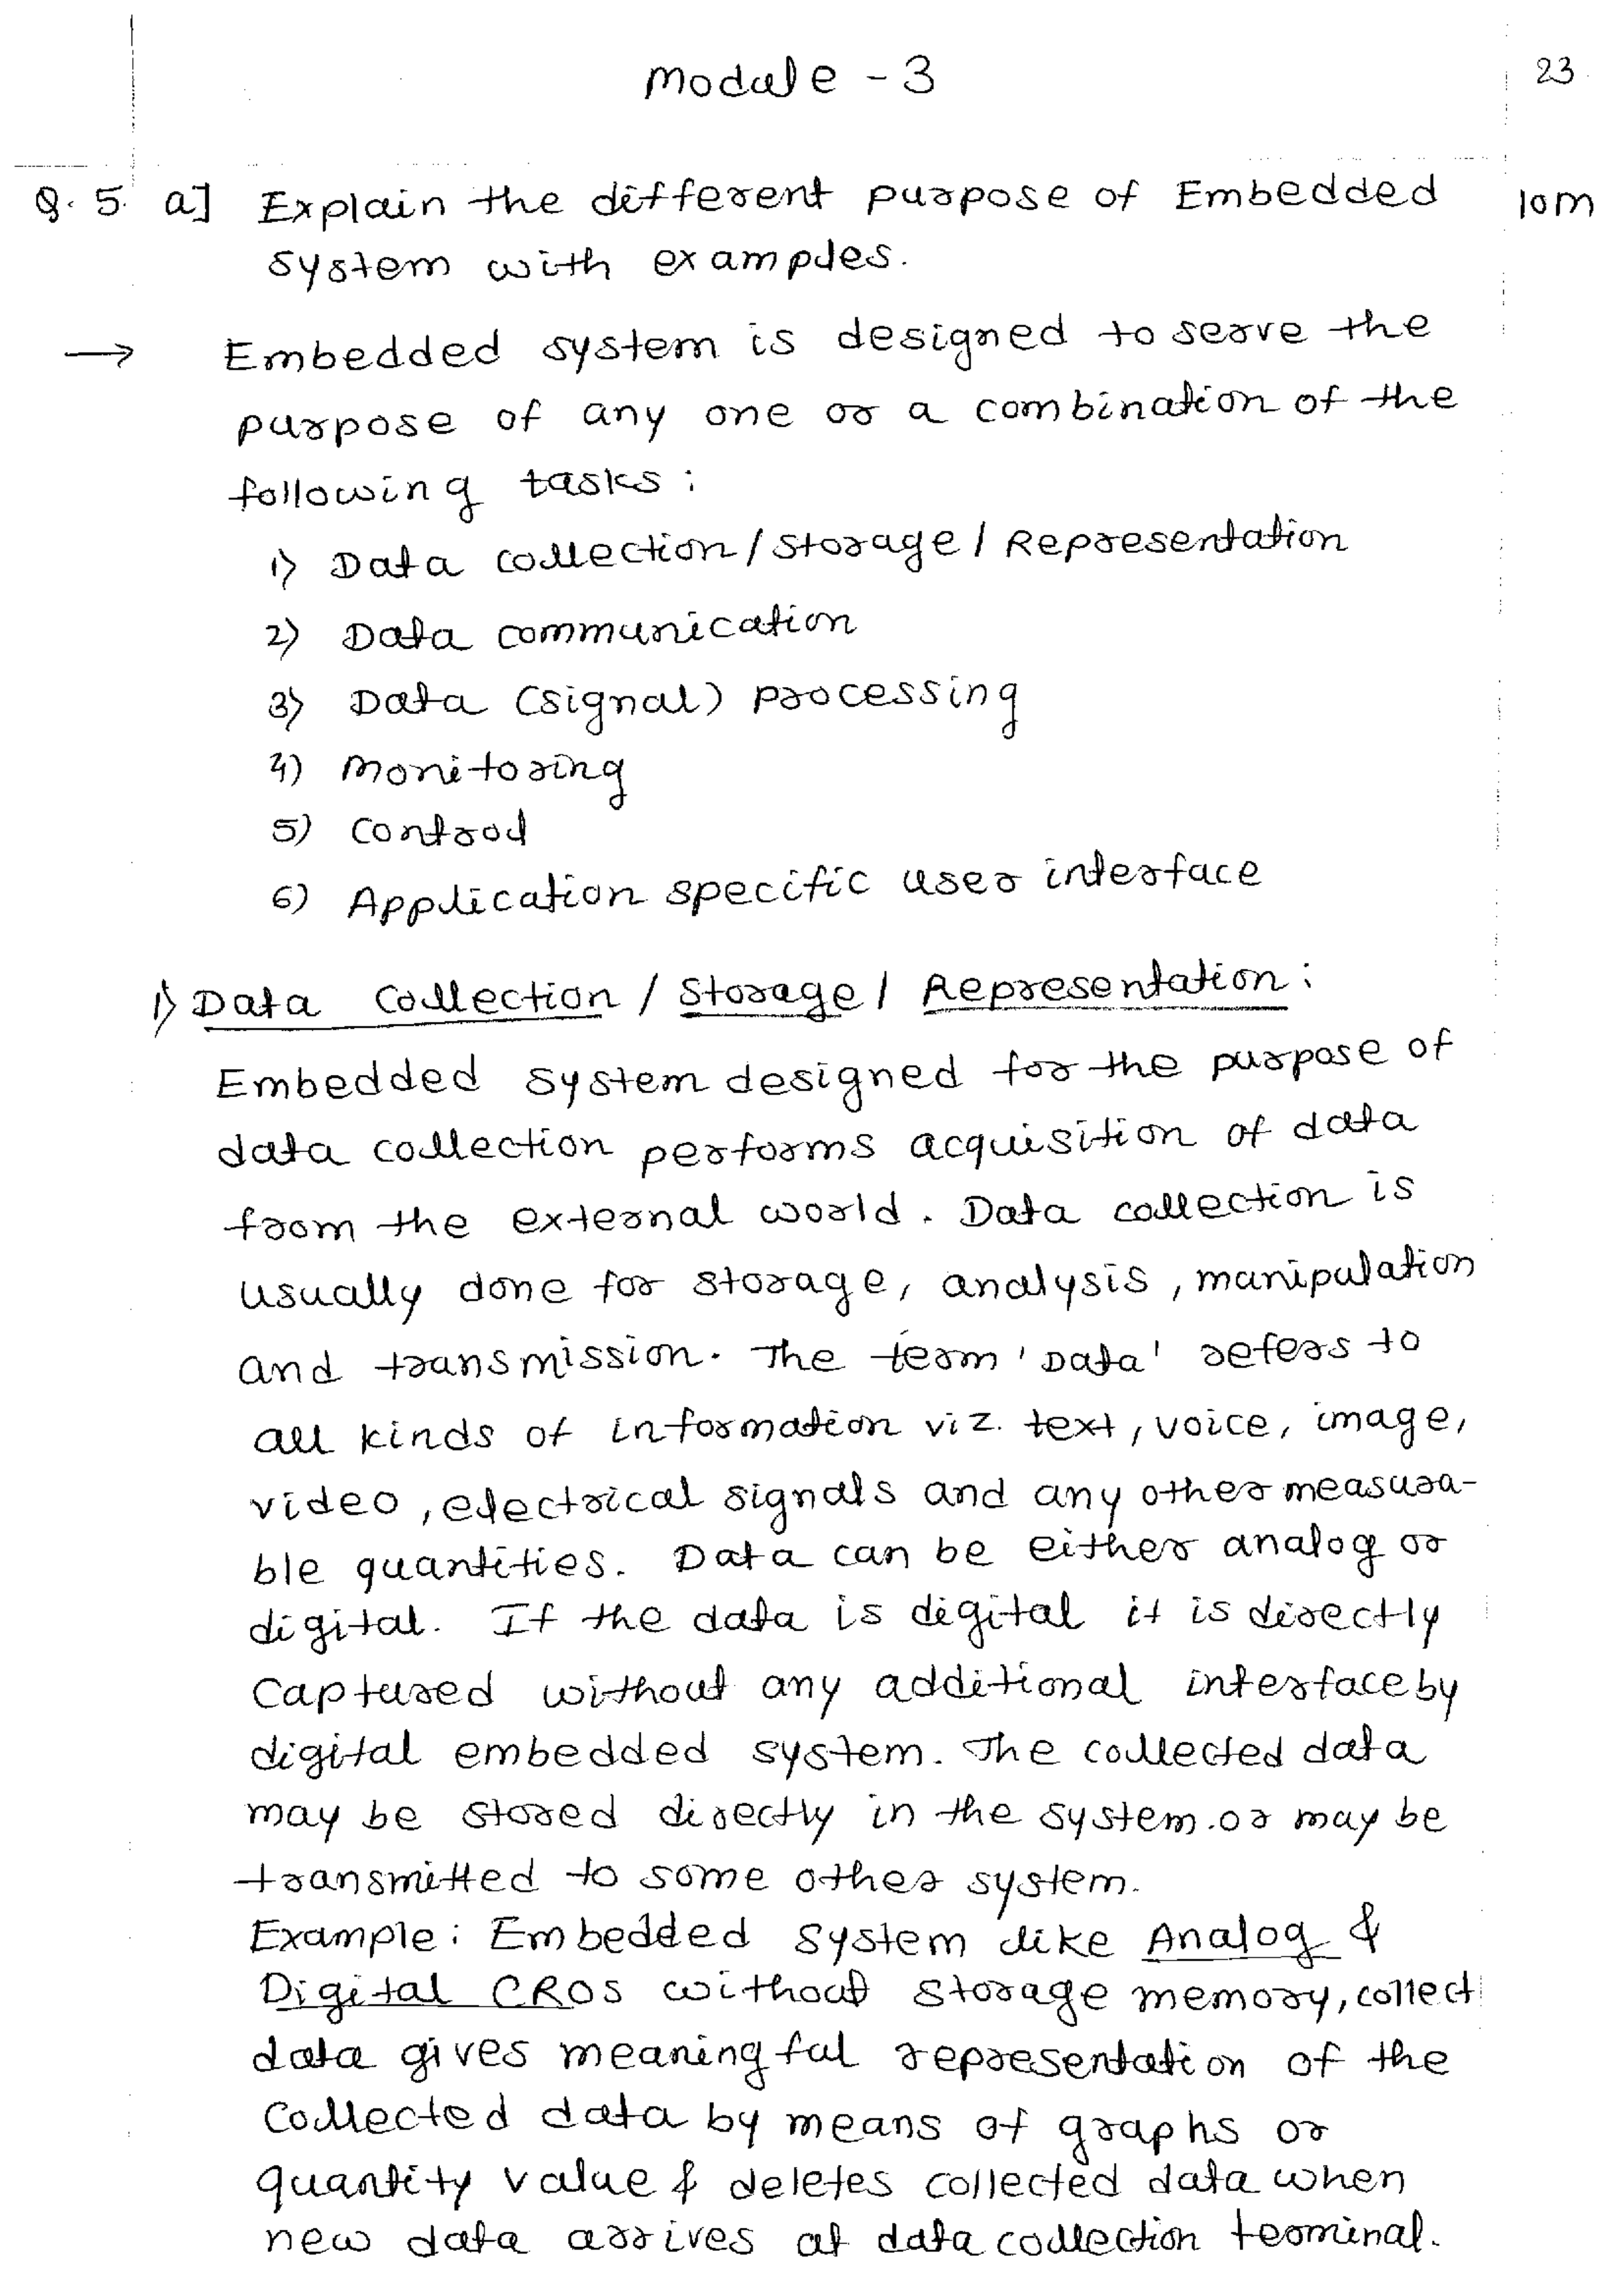 Module - 3
23
Q. 5 a] Explain the different purpose of Embedded 10M
system with examples.
→ Embedded system is designed to serve the
purpose of any one or a combination of the
following tasks :
1) Data collection / Storage / Representation
2) Data communication
3) Data (signal) processing
4) Monitoring
5) Control
6) Application specific user interface
1) Data Collection / Storage / Representation :
Embedded system designed for the purpose of
data collection performs acquisition of data
from the external world. Data collection is
usually done for storage, analysis, manipulation
and transmission. The term 'Data' refers to
all kinds of information viz. text, voice, image,
video, electrical signals and any other measura-
ble quantities. Data can be either analog or
digital. If the data is digital it is directly
Captured without any additional interface by
digital embedded system. The collected data
may be stored directly in the system. or may be
transmitted to some other system.
Example : Embedded system like Analog &
Digital CROS without storage memory, collect
data gives meaningful representation of the
Collected data by means of graphs or
quantity value & deletes collected data when
new data arrives at data collection terminal.